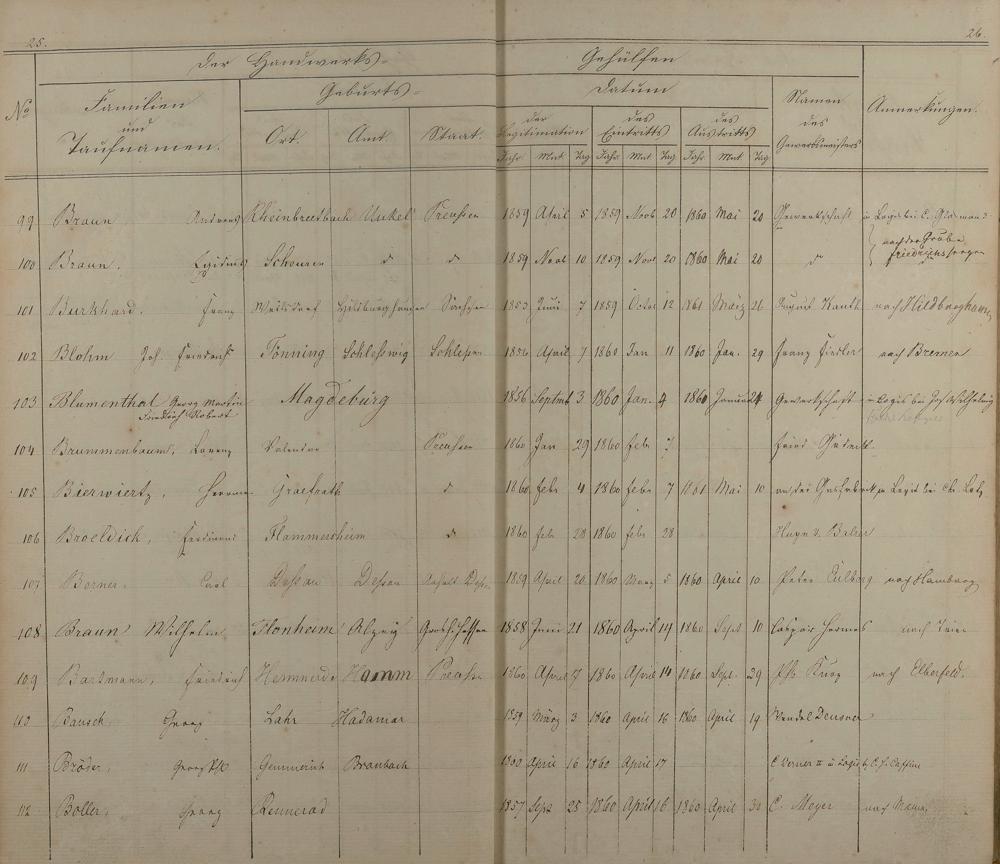 25. 26.
Der Handwerks= Gehülfen
No Familien und Taufnamen. Geburts= Datum Namen des Gewerbsmeisters Anmerkungen.
Ort. Amt. Staat. der Legitimation des Eintritts des Austritts
Jahr Mnt Tag Jahr Mnt Tag Jahr Mnt Tag
99 Braun Andreas Rheinbreitbach Unkel Preussen 1859 April 5 1859 Novb 20 1860 Mai 20 Gewerkschaft
nach der Grube
100 Braun. Egidius Scheuren d d 1859 Novb 10 1859 Novb 20 1860 Mai 20 d Friedrichssegen
101 Burkhard. Franz Hildburghausen Sachsen 1853 Juni 7 1859 Octbr 12 1861 März 26 August nach Hildburghausen
102 Blohm Joh. Friedrich Tönning Schleswig 1856 April 7 1860 Jan 11 1860 Jan. 29 Franz Fiedler nach Bremen
103 Blumenthal Georg Martin Magdeburg 1856 Septmb 3 1860 Jan. 4 1860 Januar 24 Gewerkschaft
Friedrich Robert
104 Brummenbaum, Lorenz Preussen 1860 Jan 29 1860 Febr 7 Fried
105 Bierwiertz, Herrman Graefrath d 1860 Febr 4 1860 Febr 7 1861 Mai 10
106 Broeldich, Ferdinand Flammersheim d 1860 Febr 28 1860 Febr 28
107 Berner. Carl Dessau Dessau Anhalt Dessau 1859 April 20 1860 März 5 1860 April 10 Peter Eulberg nach Hamburg
108 Braun Wilhelm Flonheim Alzey Grosh. Hessen 1858 Juni 21 1860 April 14 1860 Sept 10 Caspar Hermes nach Trier
109 Bartmann, Friedrich Hemmerde Hamm Preussen 1860 April 7 1860 April 14 1860 Sept. 29 Ph. Kurz nach Elberfeld.
110 Bausch Georg Lahr Hadamar 1859 März 3 1860 April 16 1860 April 19 Wendel Deusner
111 Bröder, Georg Ph. Gemmerich Braubach 1860 April 16 1860 April 17
112 Boller, Georg Rennerod 1857 Sept 25 1860 April 16 1860 April 30 C. Meyer nach Mainz